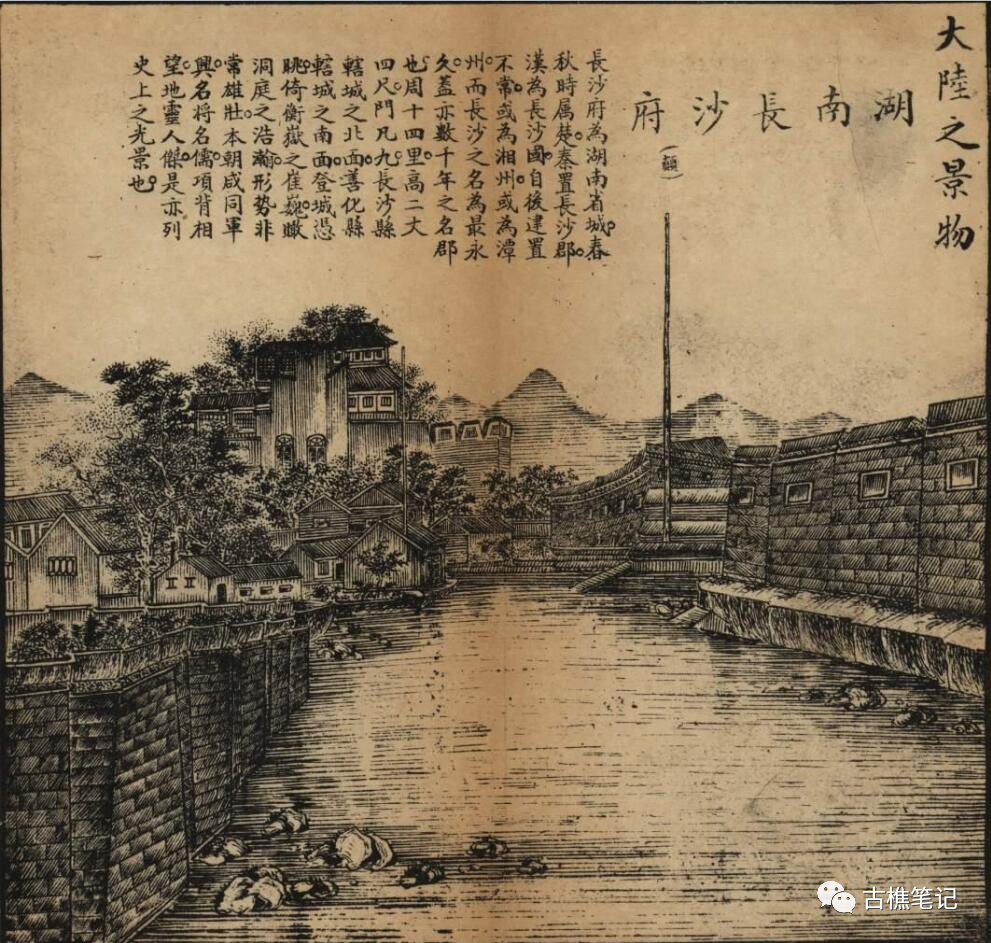 大陸之景物
湖南長沙府
長沙府為湖南省城。春
秋時属楚。秦置長沙郡。
漢為長沙國。自後建置
不常。或為湘州。或為潭
州。而長沙之名為最永
久。蓋亦數千年之名郡
也。周十四里。高二丈
四尺。門凡九。長沙縣
轄城之北面。善化縣
轄城之南面。登城憑
眺。倚衡嶽之崔巍。瞰
洞庭之浩瀚。形势非
常雄壯。本朝咸同軍
興。名将名儒。項背相
望。地靈人傑。是亦列
史上之光景也。
古樵笔记